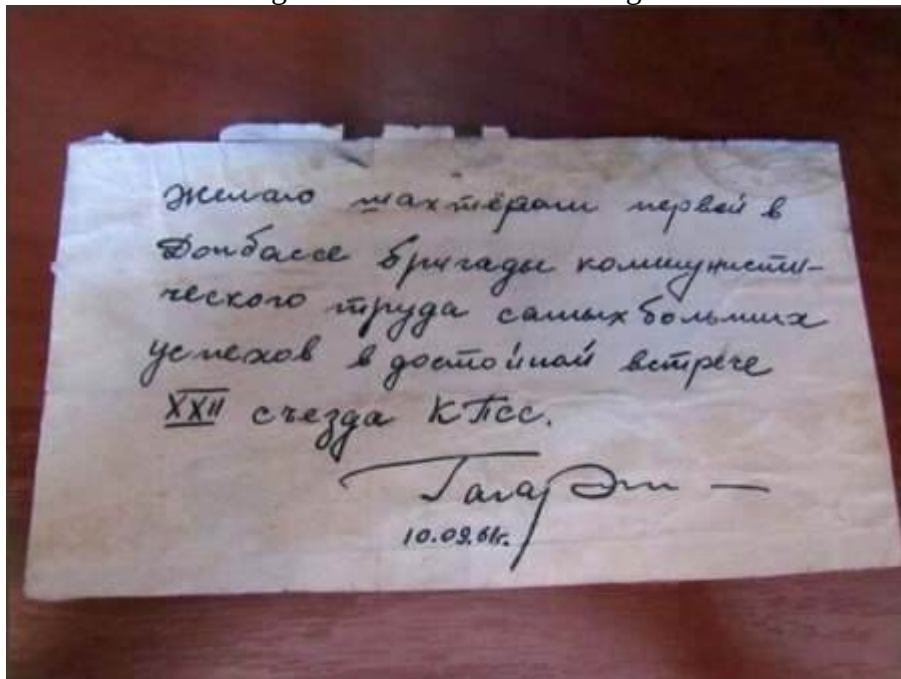 Желаю шахтёрам первой в
Донбассе бригады коммунисти-
ческого труда самых больших
успехов в достойной встрече
XXII съезда КПСС.
Гагарин
10.09.61г.